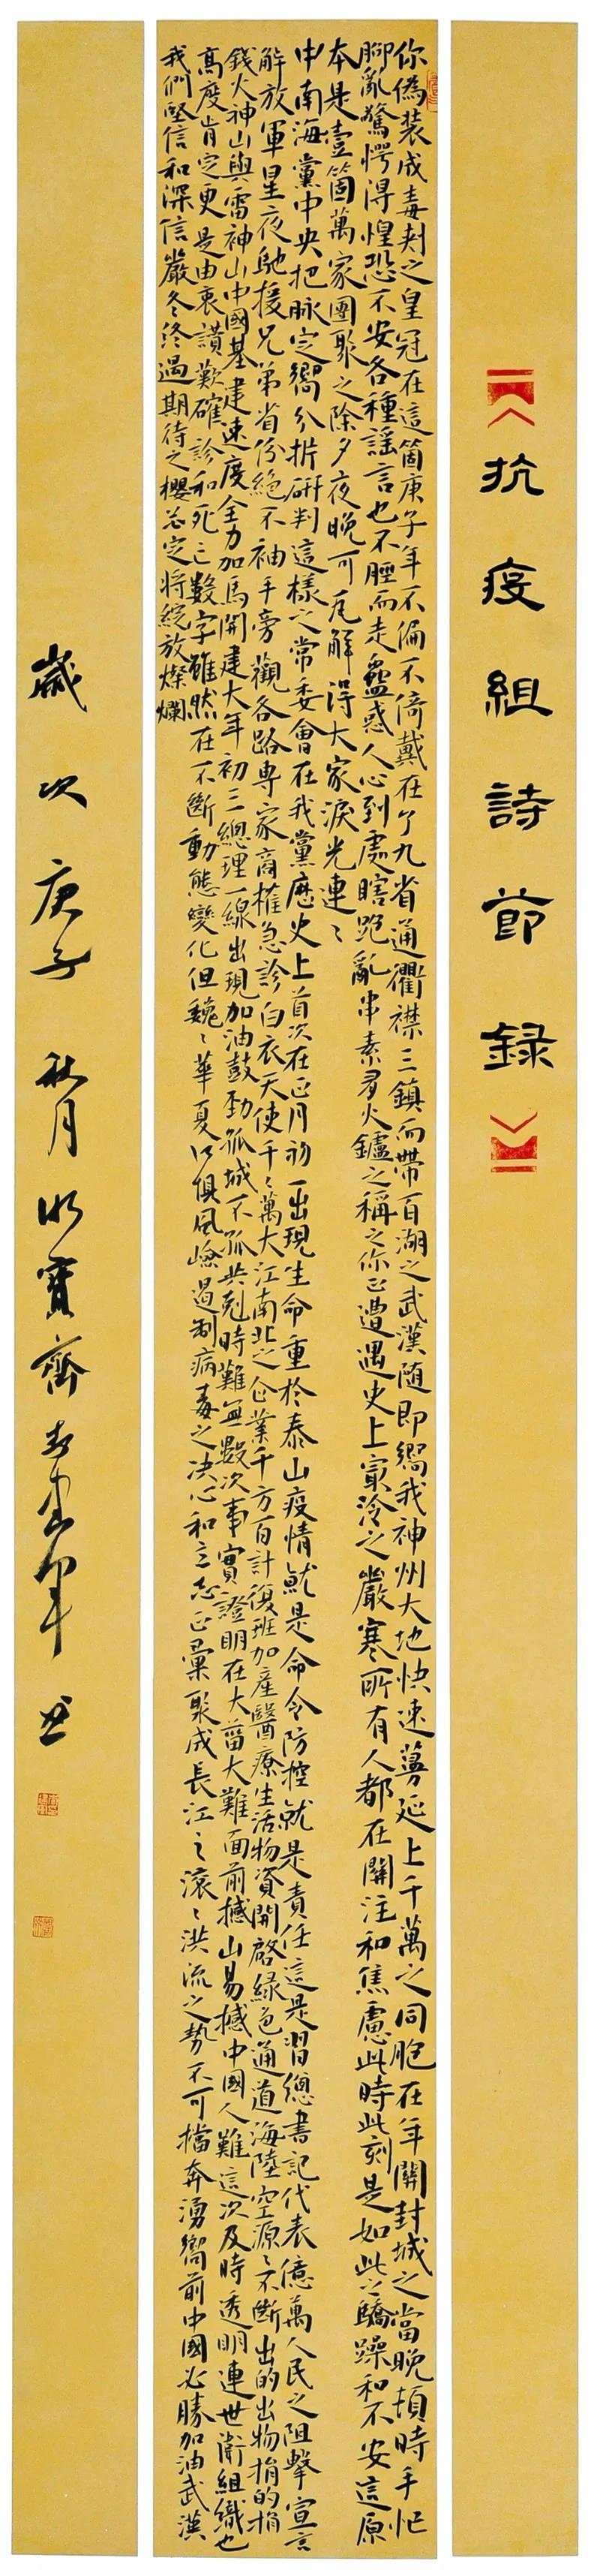 《抗疫組詩節録》
你偽装成毒刺之皇冠在這箇庚子年不偏不倚戴在了九省通衢襟三鎮而帶百湖之武漢随即嚮我神州大地快速蔓延上千萬之同胞在年關封城之當晚頓時手忙
脚亂驚愕得惶恐不安各種謡言也不脛而走蠱惑人心到處瞎跑亂串素有火鑪之稱之你正遭遇史上最冷之嚴寒所有人都在關注和焦慮此時此刻是如此之驕躁和不安這原
本是壹箇萬家團聚之除夕夜晚可瓦解得大家淚光連〻
中南海黨中央把脉定嚮分析研判這樣之常委會在我黨歷史上首次在正月初一出現生命重於泰山疫情就是命令防控就是責任這是習總書記代表億萬人民之阻擊宣言
解放軍星夜馳援兄弟省份絶不袖手旁觀各路專家商榷急診白衣天使千〻萬大江南北之企業千方百計復班加産醫療生活物資開啓緑色通道海陸空源〻不斷出的出物捐的捐
錢火神山與雷神山中國基建速度全力加馬開建大年初三總理一線出現加油鼓勁孤城不孤共剋時難無數次事實證明在大菑大難面前撼山易撼中國人難這次及時透明連世衛組織也
高度肯定更是由衷讚歎確診和死亡數字雖然在不斷動態變化但巍〻華夏口俱風嶮遏制病毒之决心和立志正彙聚成長江之滾〻洪流之勢不可擋奔湧嚮前中國必勝加油武漢
我們堅信和深信嚴冬終過期待之櫻花定將綻放燦爛
歲次庚子秋月